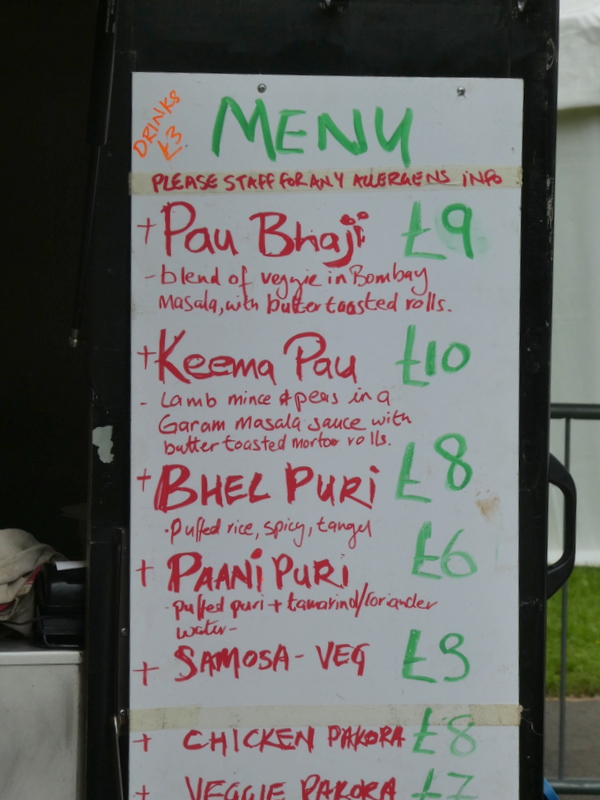 DRINKS
£3
MENU
PLEASE STAFF FOR ANY ALLERGENS INFO
+ Pau Bhaji £9
- blend of veggie in Bombay
Masala, with butter toasted rolls.
+ Keema Pau £10
- Lamb mince & peas in a
Garam Masala sauce with
butter toasted rolls.
+ BHEL PURI £8
- Puffed rice, spicy, tangy
+ PAANI PURI £6
- puffed puri + tamarind/coriander
water-
+ SAMOSA - VEG
+ CHICKEN PAKORA £8
+ VEGGIE PAKORA £7